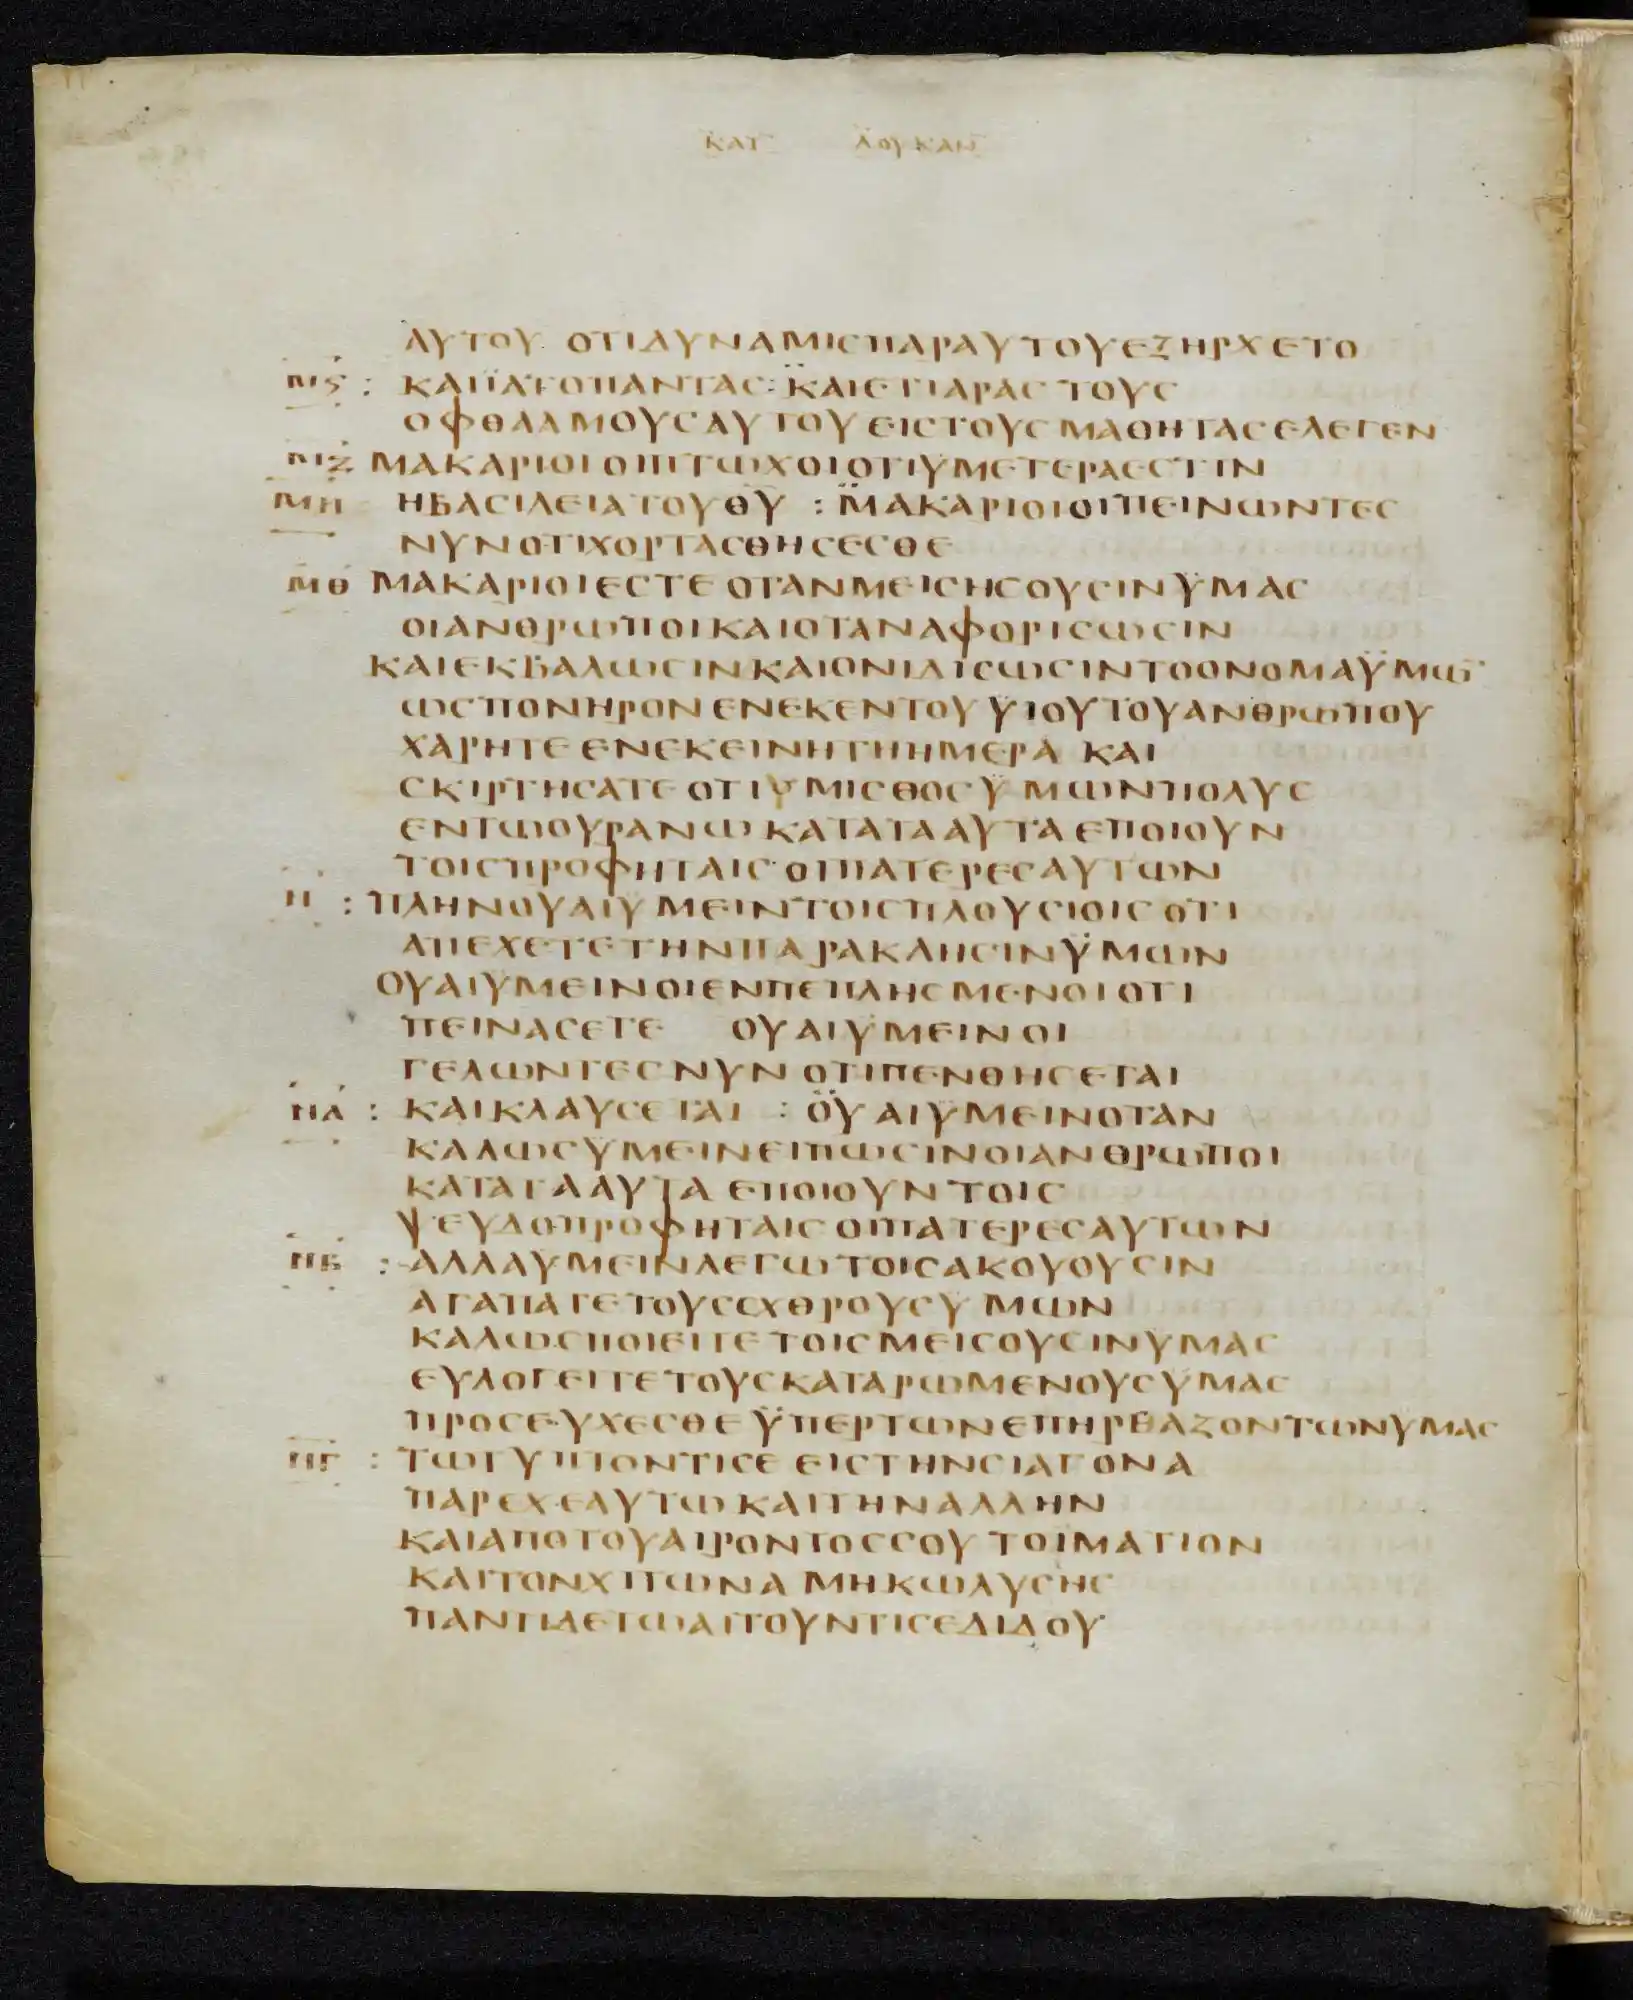 ΚΑΤ ΛΟΥΚΑΝ
ΑΥΤΟΥ ΟΤΙΔΥΝΑΜΙСΠΑΡΑΥΤΟΥΕΞΗΡΧΕΤΟ
ΜϚ : ΚΑΙΪΑΤΟΠΑΝΤΑС : ΚΑΙΕΠΑΡΑС ΤΟΥС
ΟΦΘΑΛΜΟΥСΑΥΤΟΥΕΙСΤΟΥСΜΑΘΗΤΑСΕΛΕΓΕΝ
ΜΖ ΜΑΚΑΡΙΟΙΟΙΠΤΩΧΟΙΟΤΙΫΜΕΤΕΡΑΕСΤΙΝ
ΜΗ ΗΒΑСΙΛΕΙΑΤΟΥΘΥ : ΜΑΚΑΡΙΟΙΟΙΠΕΙΝΩΝΤΕС
ΝΥΝΟΤΙΧΟΡΤΑСΘΗСΕСΘΕ
ΜΘ ΜΑΚΑΡΙΟΙΕСΤΕ ΟΤΑΝΜΕΙСΗСΟΥСΙΝΫΜΑС
ΟΙΑΝΘΡΩΠΟΙΚΑΙΟΤΑΝΑΦΟΡΙСΩСΙΝ
ΚΑΙΕΚΒΑΛΩСΙΝΚΑΙΟΝΙΔΙСΩСΙΝΤΟΟΝΟΜΑΫΜΩ̅
ΩСΠΟΝΗΡΟΝΕΝΕΚΕΝΤΟΥΫΙΟΥΤΟΥΑΝΘΡΩΠΟΥ
ΧΑΡΗΤΕΕΝΕΚΕΙΝΗΤΗΗΜΕΡΑ ΚΑΙ
СΚΙΡΤΗСΑΤΕ ΟΤΙΥΜΙСΘΟСΫΜΩΝΠΟΛΥС
ΕΝΤΩΟΥΡΑΝΩΚΑΤΑΤΑΑΥΤΑΕΠΟΙΟΥΝ
ΤΟΙСΠΡΟΦΗΤΑΙСΟΙΠΑΤΕΡΕСΑΥΤΩΝ
Ν : ΠΛΗΝΟΥΑΙΫΜΕΙΝΤΟΙСΠΛΟΥСΙΟΙСΟΤΙ
ΑΠΕΧΕΤΕΤΗΝΠΑΡΑΚΛΗСΙΝΫΜΩΝ
ΟΥΑΙΫΜΕΙΝΟΙΕΝΠΕΠΛΗСΜΕΝΟΙΟΤΙ
ΠΕΙΝΑСΕΤΕ ΟΥΑΙΫΜΕΙΝΟΙ
ΓΕΛΩΝΤΕСΝΥΝΟΤΙΠΕΝΘΗСΕΤΑΙ
ΝΑ : ΚΑΙΚΛΑΥСΕΤΑΙ : ΟΥΑΙΫΜΕΙΝΟΤΑΝ
ΚΑΛΩСΫΜΕΙΝΕΙΠΩСΙΝΟΙΑΝΘΡΩΠΟΙ
ΚΑΤΑΤΑΑΥΤΑΕΠΟΙΟΥΝΤΟΙС
ΨΕΥΔΟΠΡΟΦΗΤΑΙСΟΙΠΑΤΕΡΕСΑΥΤΩΝ
ΝΒ : ΑΛΛΑΥΜΕΙΝΛΕΓΩΤΟΙСΑΚΟΥΟΥСΙΝ
ΑΓΑΠΑΤΕΤΟΥСΕΧΘΡΟΥСΫΜΩΝ
ΚΑΛΩСΠΟΙΕΙΤΕΤΟΙСΜΕΙСΟΥСΙΝΥΜΑС
ΕΥΛΟΓΕΙΤΕΤΟΥСΚΑΤΑΡΩΜΕΝΟΥСΥΜΑС
ΠΡΟСΕΥΧΕСΘΕΫΠΕΡΤΩΝΕΠΗΡΕΑΖΟΝΤΩΝΥΜΑС
ΝΓ : ΤΩΤΥΠΤΟΝΤΙСΕ ΕΙСΤΗΝСΙΑΓΟΝΑ
ΠΑΡΕΧΕΑΥΤΩΚΑΙΤΗΝΑΛΛΗΝ
ΚΑΙΑΠΟΤΟΥΑΙΡΟΝΤΟССΟΥΤΟΙΜΑΤΙΟΝ
ΚΑΙΤΟΝΧΙΤΩΝΑ ΜΗΚΩΛΥСΗС
ΠΑΝΤΙΔΕΤΩΑΙΤΟΥΝΤΙСΕΔΙΔΟΥ